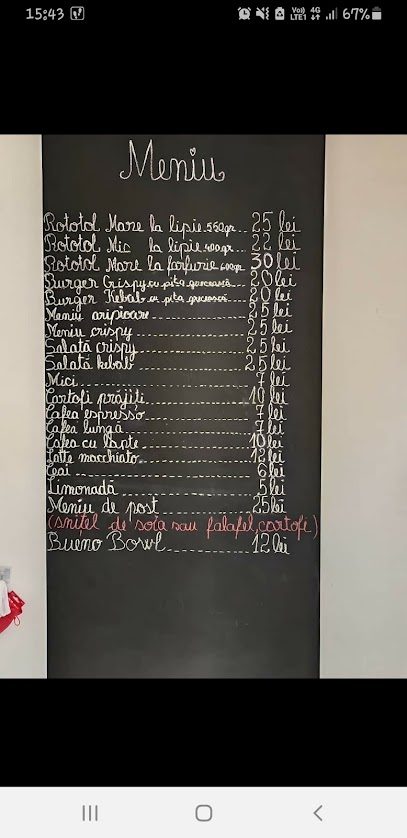 15:43
Vo)) LTE1 4G 67%
Meniu
Rototol Mare la lipie 550gr... 25 lei
Rototol Mic la lipie 400gr... 22 lei
Rototol Mare la farfurie 600gr. 30 lei
Burger Crispy cu pita grecească 20 lei
Burger Kebab cu pita grecească 20 lei
Meniu aripioare 25 lei
Meniu crispy 25 lei
Salată crispy 25 lei
Salată kebab 25 lei
Mici 7 lei
Cartofi prăjiti 10 lei
Cafea espresso 7 lei
Cafea lungă 7 lei
Cafea cu lapte 10 lei
Latte macchiato 12 lei
Ceai 6 lei
Limonadă 5 lei
Meniu de post 25 lei
(snițel de soia sau falafel, cartofi)
Bueno Bowl 12 lei